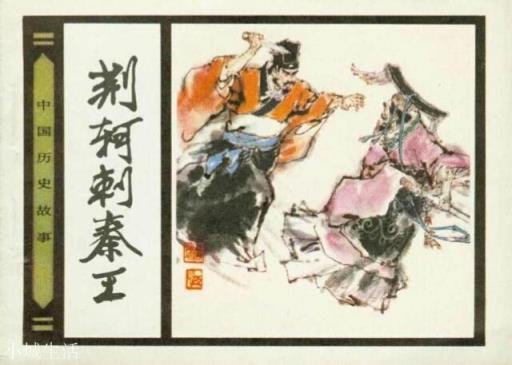 中国历史故事
荆轲刺秦王
小城生活